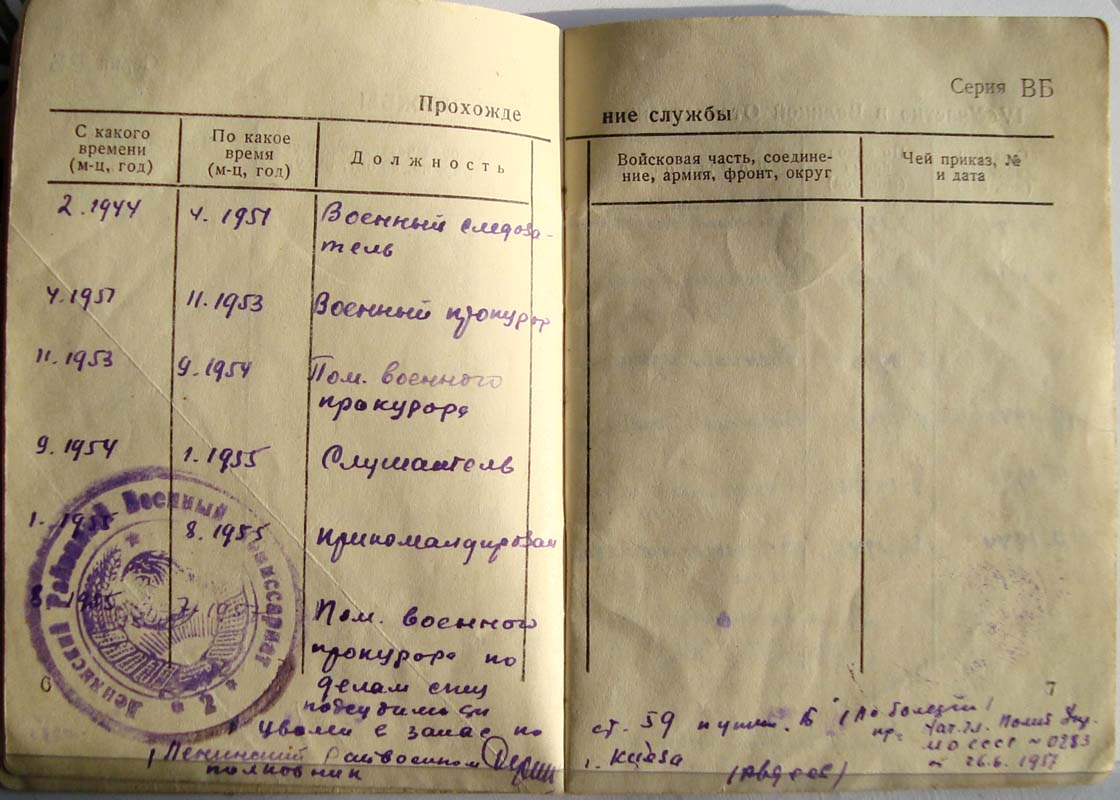 Серия ВБ
Прохождение службы
С какого времени (м-ц, год)
По какое время (м-ц, год)
Должность
Войсковая часть, соединение, армия, фронт, округ
Чей приказ, № и дата
2.1944 4.1951 Военный следова-
тель
4.1951 11.1953 Военный прокурор
11.1953 9.1954 Пом. военного
прокурора
9.1954 1.1955 Слушатель
1.1955 8.1955 прикомандирован
8.1955 7.1957 Пом. военного
прокурора по
делам спец
подсудимости
Уволен в запас по ст. 59 пункт. Б (По болезни)
пр.
МО СССР № 0283
26.6.1957
Ленинский Райвоенком
полковник
Ленинский Районный Военный Комиссариат
2
6
7